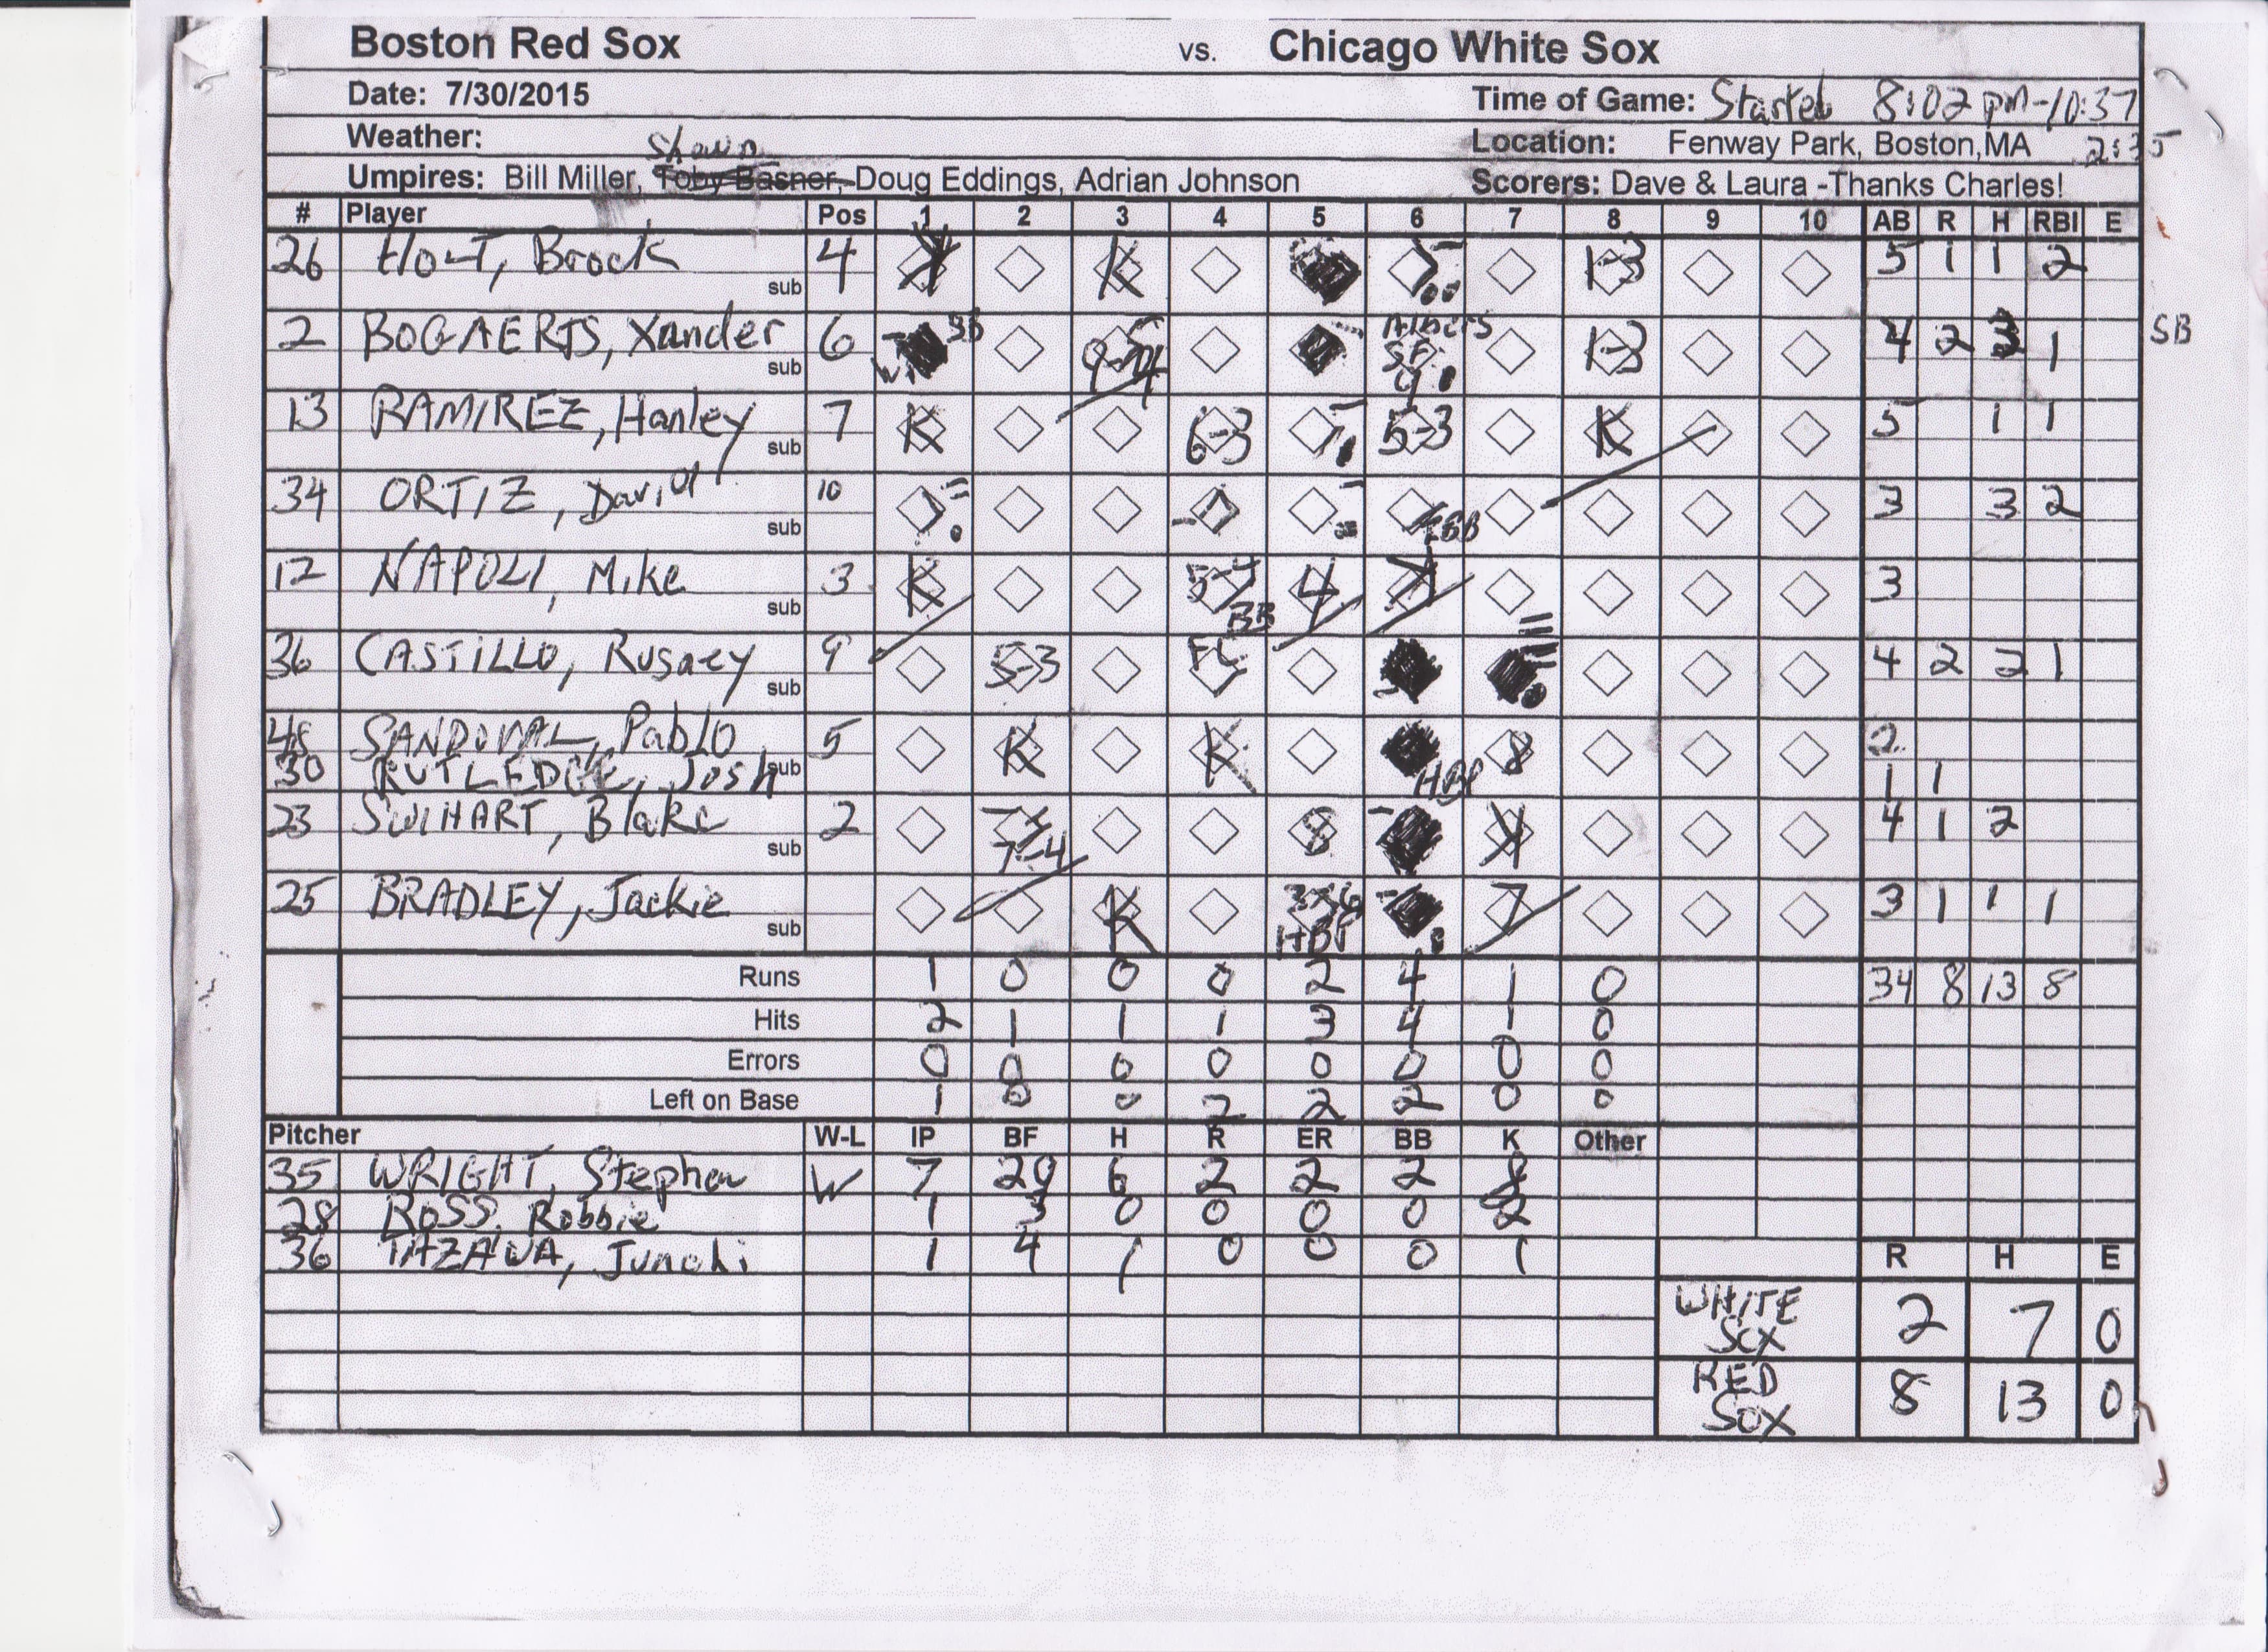 Boston Red Sox vs. Chicago White Sox
Date: 7/30/2015 Time of Game: Started 8:02 pm-10:37
Weather: Location: Fenway Park, Boston,MA 2:35
Shawn
Umpires: Bill Miller, Toby Basner, Doug Eddings, Adrian Johnson Scorers: Dave & Laura -Thanks Charles!
# Player Pos 1 2 3 4 5 6 7 8 9 10 AB R H RBI E
26 HOLT, Brock sub 4 K K 1-3 5 1 1 2
2 BOGAERTS, Xander sub 6 SB Albers SF 9 1-3 4 2 3 1 SB
13 RAMIREZ, Hanley sub 7 K 6-3 5-3 K 5 1 1
34 ORTIZ, David sub 10 BB 3 3 2
12 NAPOLI, Mike sub 3 K BB 4 K 3
36 CASTILLO, Rusney sub 9 5-3 FC 4 2 2 1
48 SANDOVAL, Pablo 5 K K HBP 8 2
30 RUTLEDGE, Josh sub 1 1
23 SWIHART, Blake sub 2 7-4 8 K 4 1 2
25 BRADLEY, Jackie sub K HBP 7 3 1 1 1
Runs 1 0 0 0 2 4 1 0 34 8 13 8
Hits 2 1 1 1 3 4 1 0
Errors 0 0 0 0 0 0 0 0
Left on Base 1 0 0 2 2 2 0 0
Pitcher W-L IP BF H R ER BB K Other
35 WRIGHT, Stephen W 7 29 6 2 2 2 8
28 ROSS, Robbie 1 3 0 0 0 0 2
36 TAZAWA, Junchi 1 4 1 0 0 0 1
R H E
WHITE SOX 2 7 0
RED SOX 8 13 0